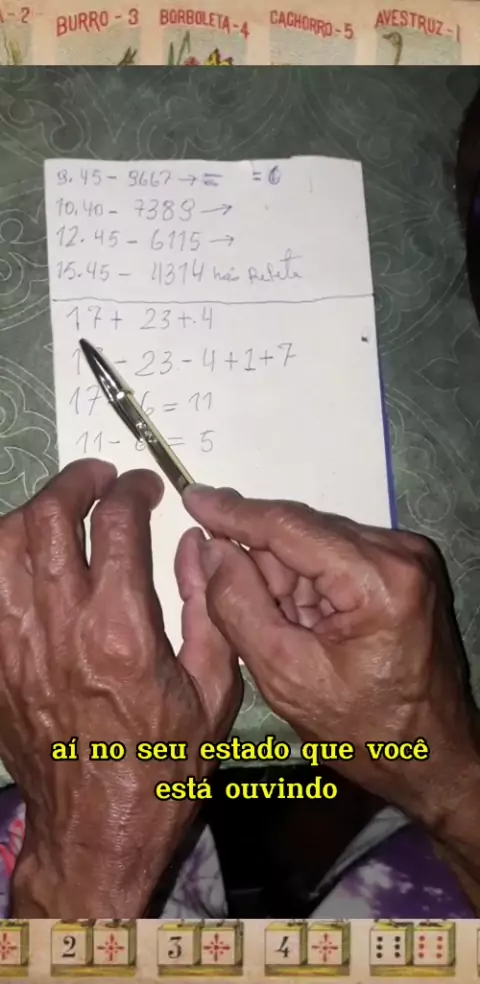 -2 BURRO - 3 BORBOLETA - 4 CACHORRO - 5 AVESTRUZ - 1
9.45 - 9667 → = = 6
10.40 - 7389 →
12.45 - 6115 →
15.45 - 4314 não Repete
17 + 23 + 4
- 23 - 4 + 1 + 7
17 6 = 11
11 - 6 = 5
aí no seu estado que você
está ouvindo
2 3 4